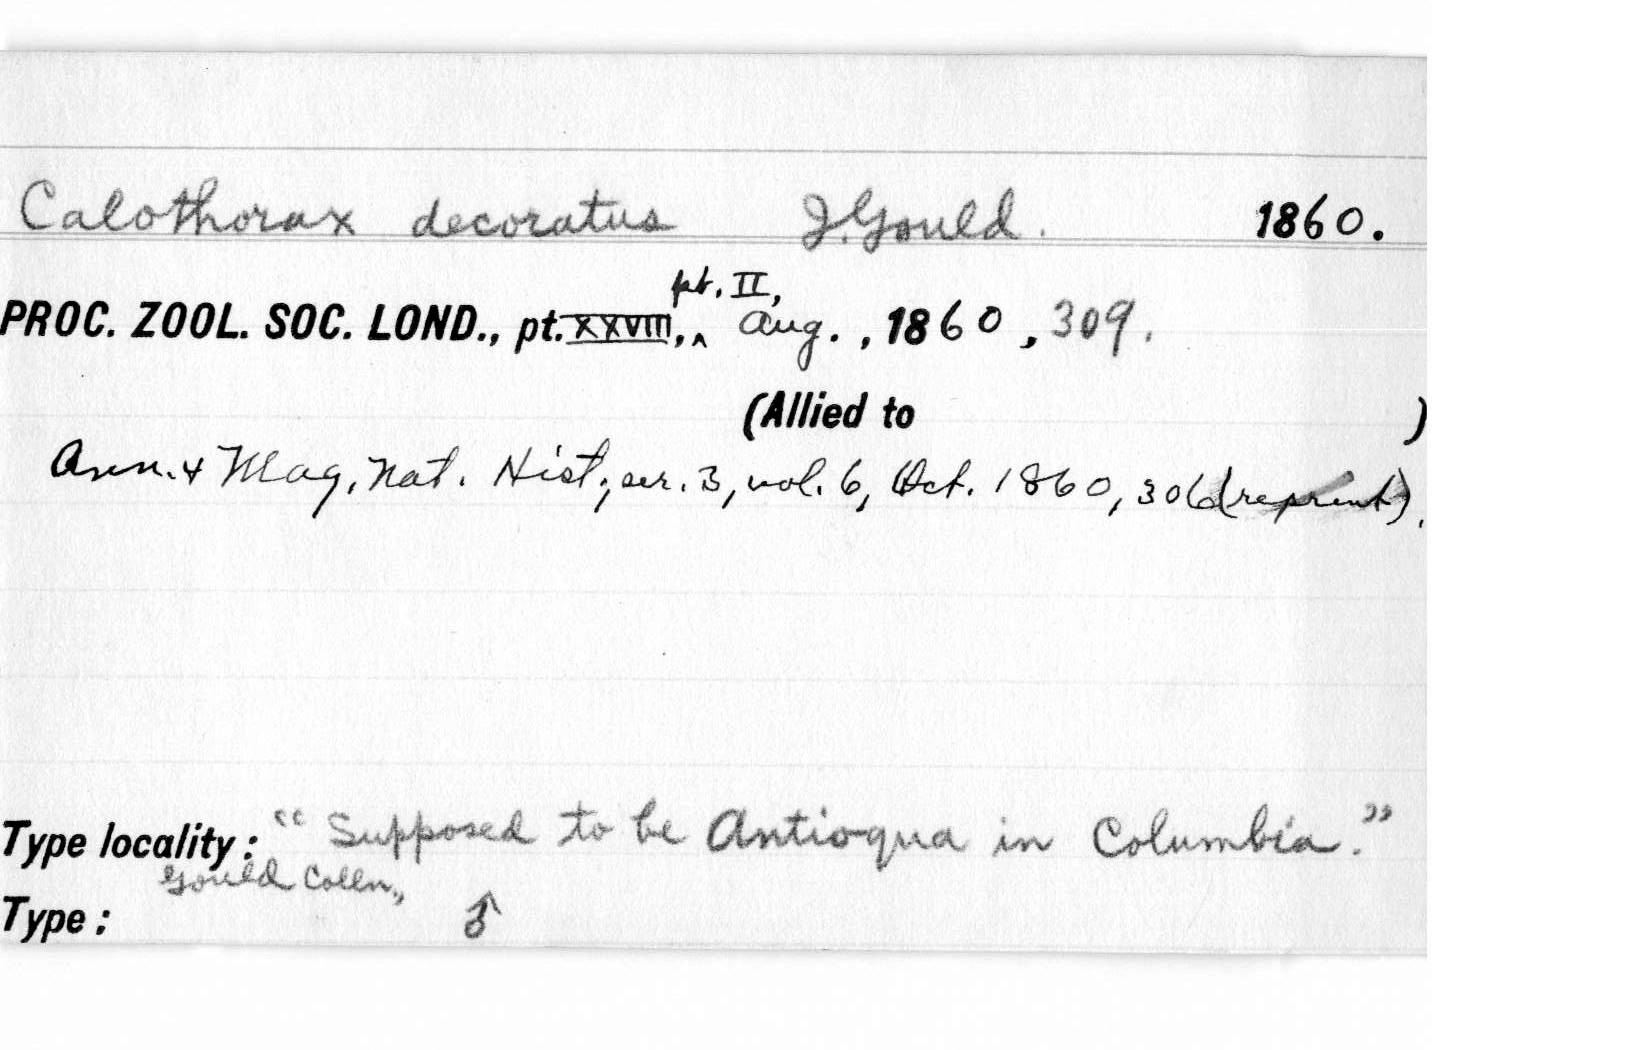 Calothorax decoratus J. Gould. 1860.
pt. II,
PROC. ZOOL. SOC. LOND., pt. XXVIII, ^ Aug. , 1860 , 309.
(Allied to )
Ann. & Mag. Nat. Hist., ser. 3, vol. 6, Oct. 1860, 306 (reprint).
Type locality : "Supposed to be Antioqua in Columbia."
Gould Colln.,
Type : ♂